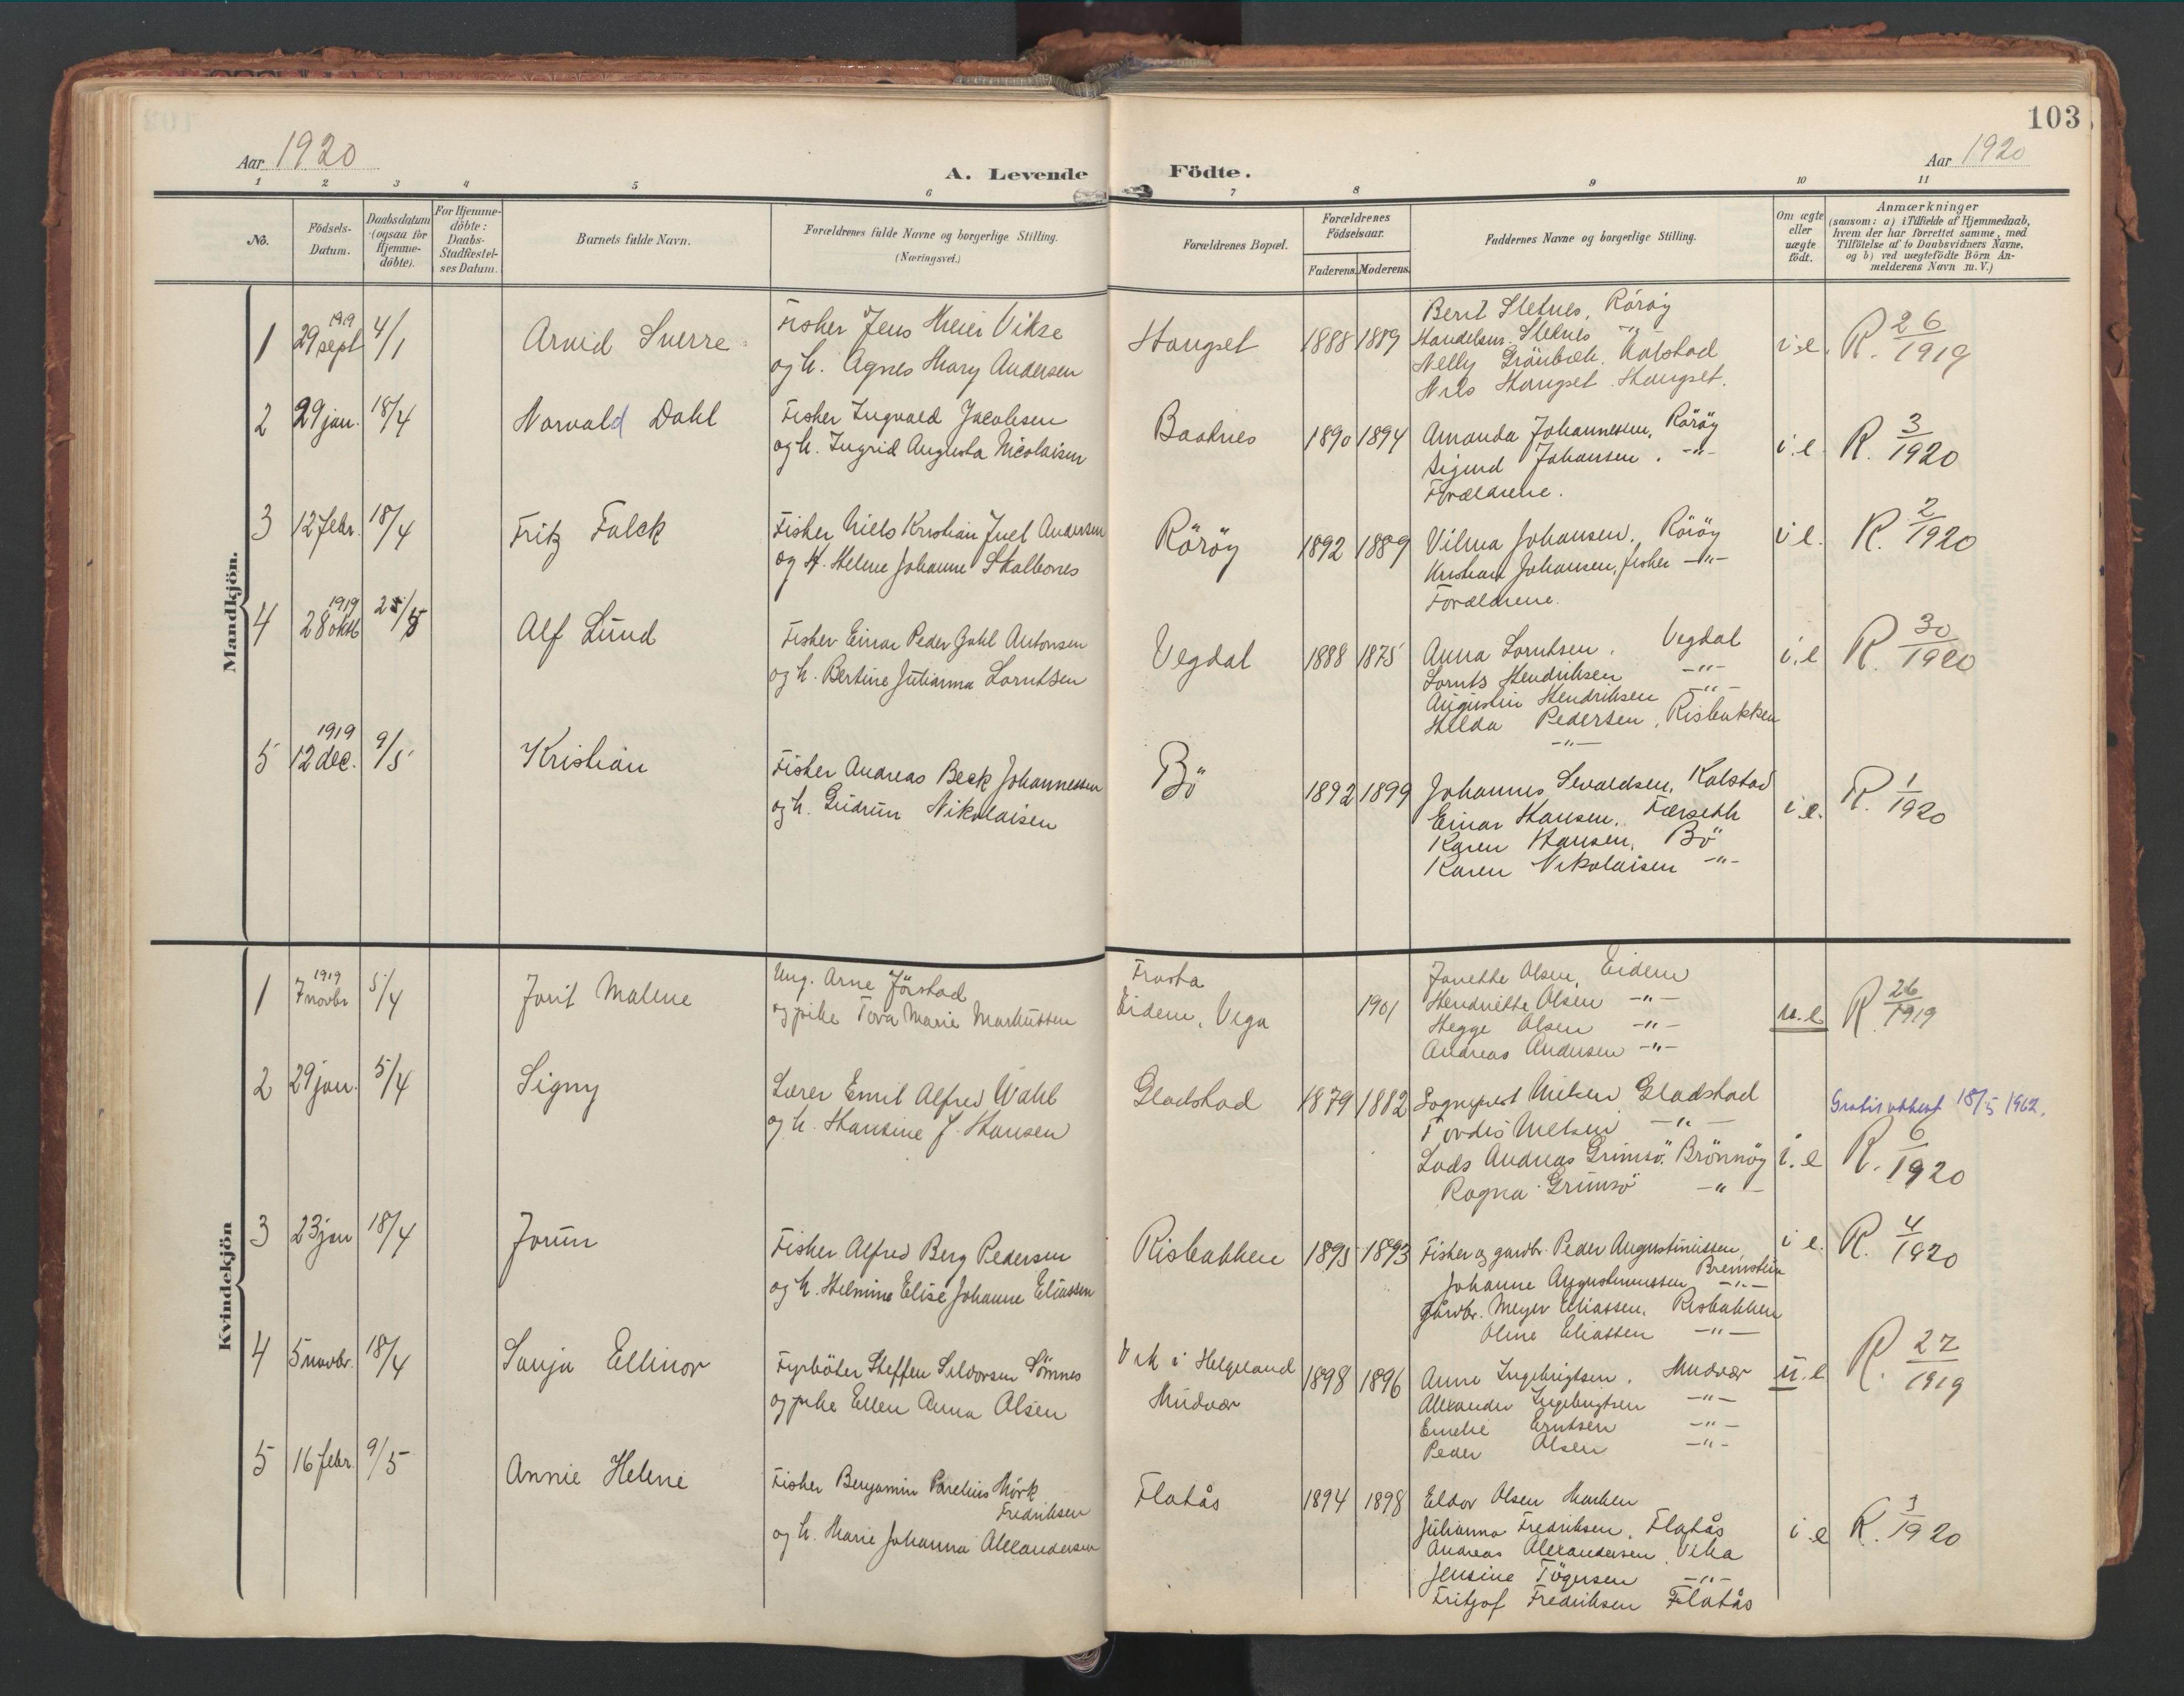 103
Aar 1920
A. Levende Födte.
Aar 1920
1 2 3 4 5 6 7 8 9 10 11
No.
Födsels-Datum.
Daabsdatum (ogsaa for Hjemme-döbte).
For Hjemme-döbte: Daabs-Stadfæstel-ses Datum.
Barnets fulde Navn.
Forældrenes fulde Navne og borgerlige Stilling.
(Næringsvei.)
Forældrenes Bopæl.
Forældrenes Födselsaar.
Faderens. Moderens.
Faddernes Navne og borgerlige Stilling.
Om ægte eller uægte födt.
Anmærkninger
(saasom: a) i Tilfælde af Hjemmedaab,
hvem der har forrettet samme, med
Tilföielse af to Daabsvidners Navne.
og b) ved uægtefödte Börn An-
melderens Navn m. V.)
Mandkjön.
1 1919 29 sept 4/1 Arvid Sverre
Fisker Jens Meier Vikse
og h. Agnes Mary Andersen
Hongset 1888 1889
Berit Sletnes, Röröy
Handelsm. Sletnes -"-
Nelly Grönbech. Kolstad
Nils Hongset. Hongset.
i.e. R. 26/1919
2 29 jan. 18/4 Norvald Dahl
Fisker Ingvald Jacobsen
og h. Ingrid Augusta Nicolaisen
Baaknes 1890 1894
Amanda Johannessen, Röröy
Sigurd Johansen. -"-
Forældrene.
i.e. R. 3/1920
3 12 febr. 18/4 Fritz Falck
Fisker Niels Kristian Juel Andersen
og H. Helene Johanne Skalbones
Röröy 1892 1889
Vilma Johansen, Röröy
Kristian Johansen, fisker -"-
Forældrene.
i e. R. 2/1920
4 1919 28 oktb 25/5 Alf Lund
Fisker Einar Peder Dahl Antonsen
og h. Bertine Julianna Lorntsen
Vegdal 1888 1875
Anna Lorntsen. Vegdal
Lornts Hendriksen -"-
Augustin Hendriksen -"-
Hilda Pedersen, Risbakken
-"-
i.e R. 30/1920
5 1919 12 dec. 9/5 Kristian
Fisker Andreas Beck Johannessen
og h. Gudrun Nikolaisen
Bö 1892 1899
Johannes Sevaldsen, Kolstad
Einar Hansen, Færseth
Karen Hansen, Bö
Karen Nikolaisen -"-
i.e. R. 1/1920
Kvindekjön
1 1919 7 novbr 5/4 Jorit Malene
Ung. Arne Jörstad
og pike Tova Marie Markussen
Frosta
Eidem, Vega
1901
Janette Olsen, Eidem
Hendriette Olsen -"-
Hegge Olsen -"-
Andreas Andersen -"-
u.e R 26/1919
2 29 jan. 5/4 Signy
Lærer Emil Alfred Wahl
og h. Hansine J. Hansen
Gladstad 1879 1882
Sogneprest Nielsen Gladstad
Tordis Nielsen -"-
Lods Andreas Grimsö. Brönnöy
Ragna Grimsö -"-
i.e
Gratis attest 18/5 1962.
R. 6/1920
3 23 jan 18/4 Jorun
Fisker Alfred Berg Pedersen
og h. Helmine Elise Johanne Eliassen
Risbakken 1895 1893
Fisker og gaardbr. Peder Augustinussen,
Bremstein
Johanne Augustinussen -"-
Gårdbr. Meyer Eliassen, Risbakken
Oline Eliassen -"-
i e. R. 4/1920
4 5 novbr. 18/4 Sanja Ellinor
Fyrböter Steffen Seldorsen Sömnes
og pike Ellen Anna Olsen
Vik i Helgeland
Mudvær
1898 1896
Anne Ingebrigtsen. Mudvær
Alexander Ingebrigtsen -"-
Emelie Erntsen -"-
Peder Olsen -"-
u.e. R. 27/1919
5 16 febr. 9/5 Annie Helene
Fisker Benjamin Parelius Mörk
Fredriksen
og h. Marie Johanna Alexandersen
Flatås 1894 1898
Eldor Olsen Marken
Julianna Fredriksen, Flatås
Andreas Alexandersen Vika
Jensine Tögersen -"-
Fritjof Fredriksen Flatås
i e R. 3/1920